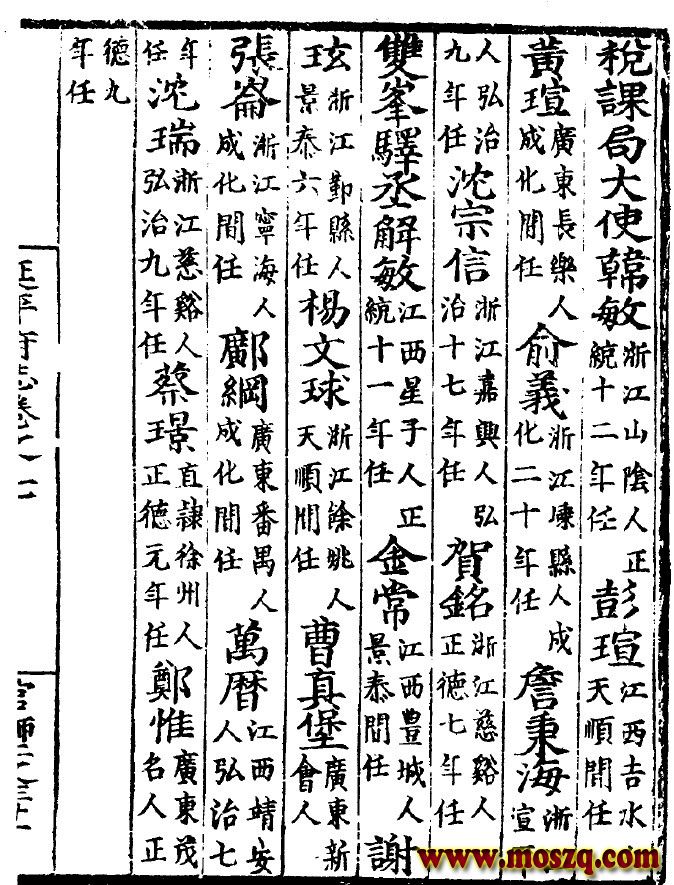 稅課局大使韓敏浙江山陰人正統十二年任彭瑄江西吉水天順間任
黃瑄廣東長樂人成化間任俞義浙江嵊縣人成化二十年任詹秉海浙宣
人弘治九年任沈宗信浙江嘉興人弘治十七年任賀銘浙江慈谿人正德七年任
雙峯驛丞解敏江西星子人正統十一年任金常江西豐城人景泰間任謝
玹浙江鄞縣人景泰六年任楊文球浙江餘姚人天順間任曹真堡廣東新會人
張崙浙江寧海人成化間任鄺綱廣東番禺人成化間任萬曆江西靖安人弘治七
年任沈瑞浙江慈谿人弘治九年任蔡璟直隸徐州人正德元年任鄭惟廣東茂名人正
德九年任
www.moszq.com